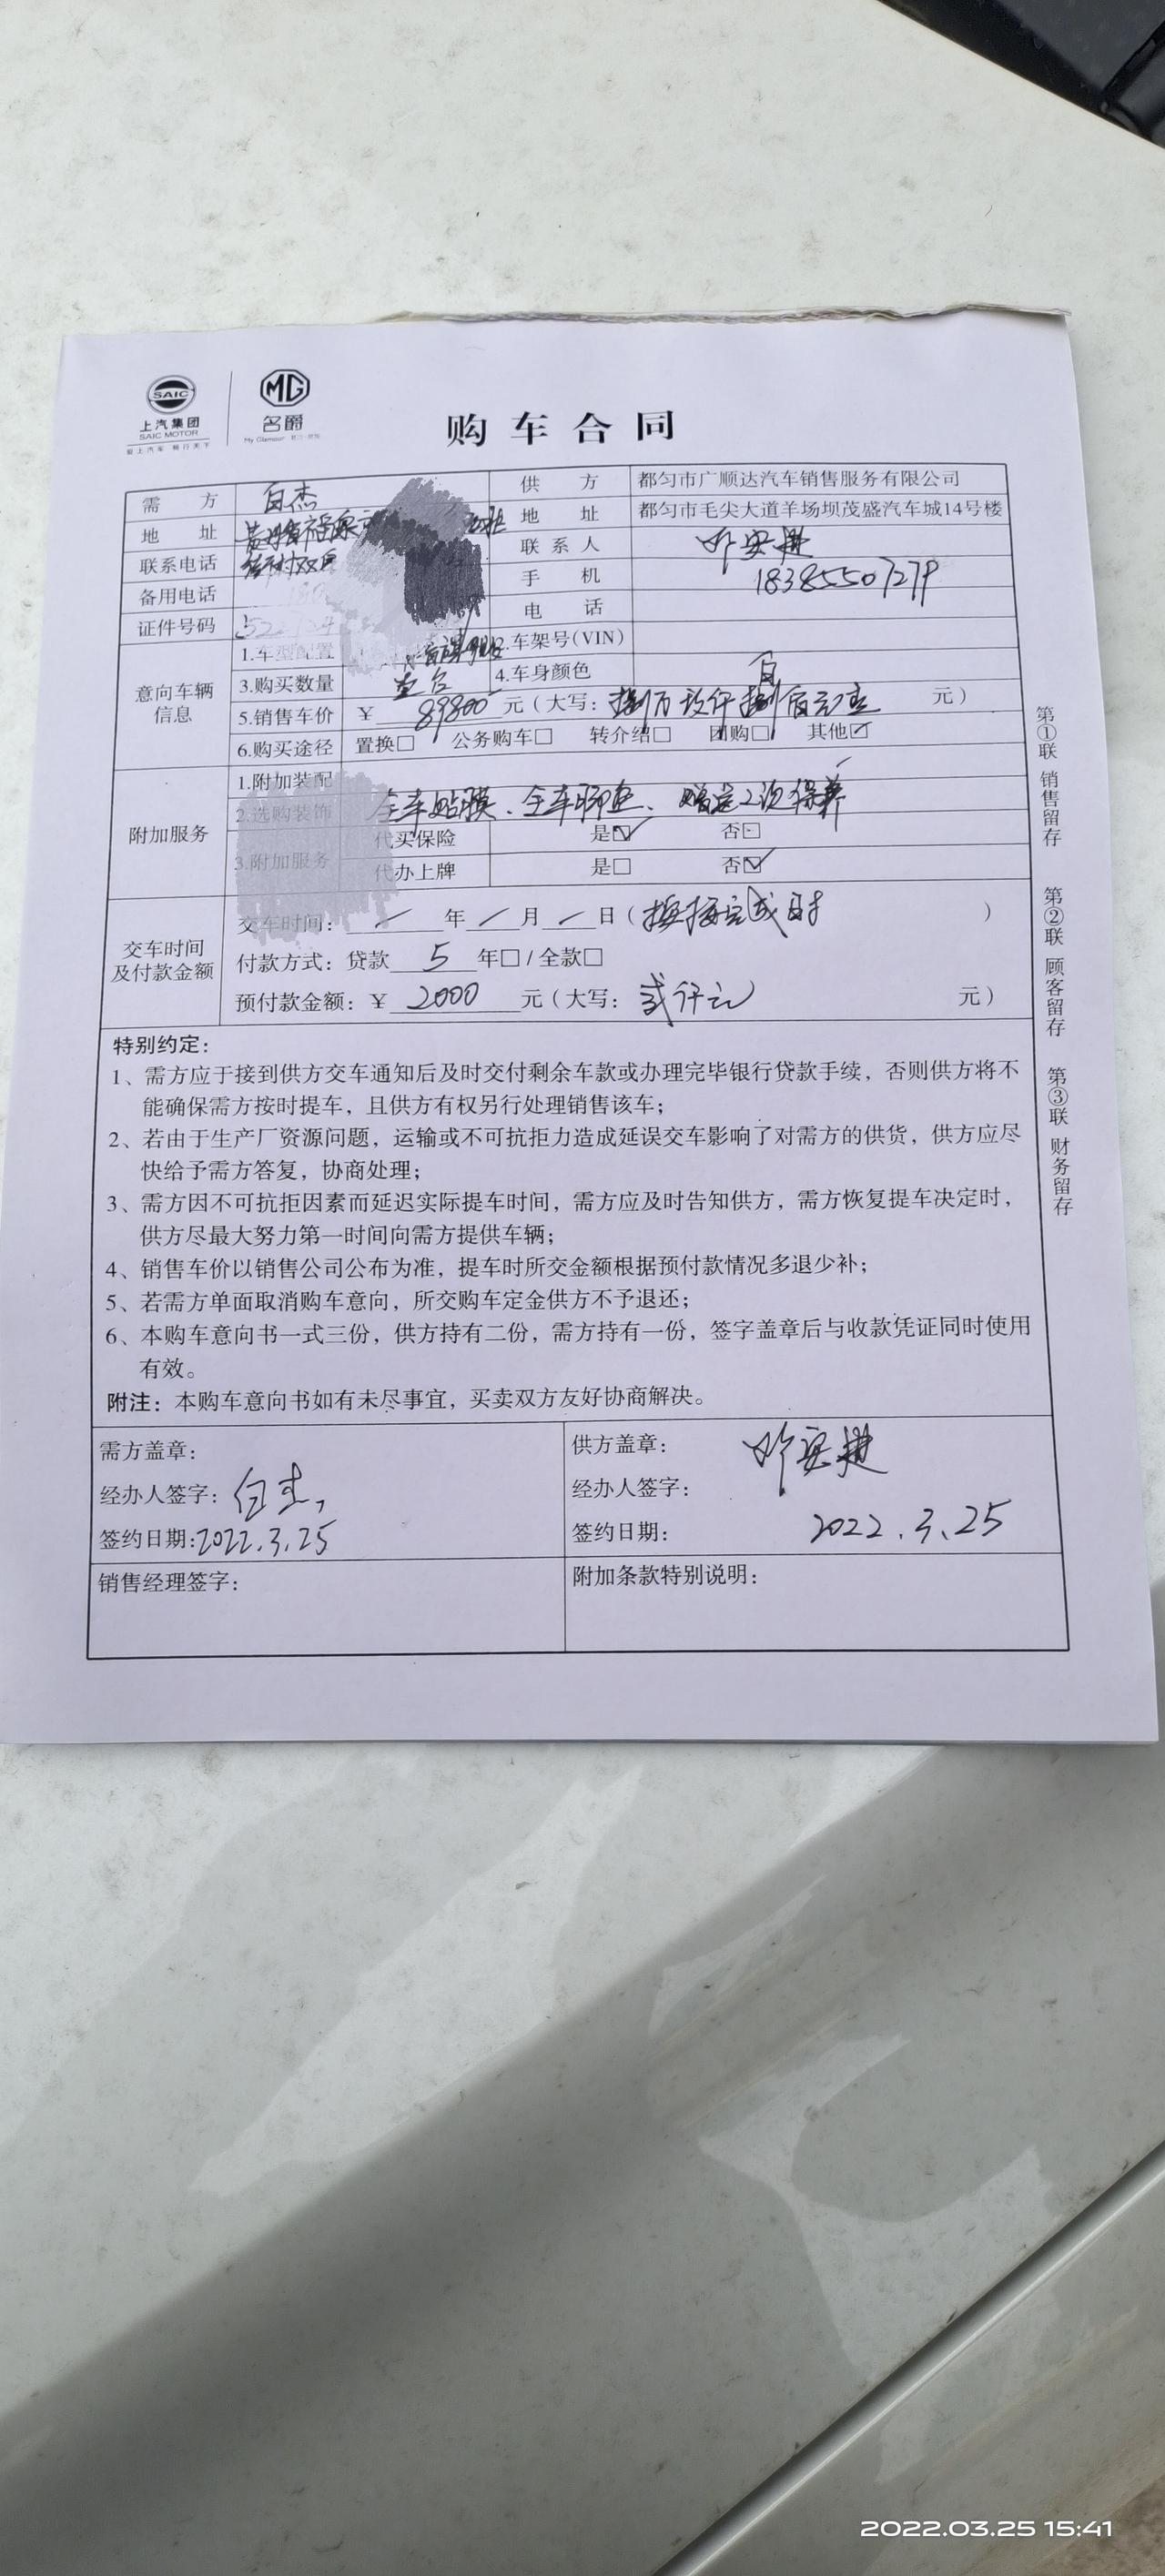 SAIC
上汽集团
SAIC MOTOR
MG
名爵
购车合同
需方 白杰 供方 都匀市广顺达汽车销售服务有限公司
地址 地址 都匀市毛尖大道羊场坝茂盛汽车城14号楼
联系电话 联系人
备用电话 手机 18385550727
证件号码 电话
意向车辆信息
1.车型配置 2.车架号(VIN)
3.购买数量 壹台 4.车身颜色 白
5.销售车价 ￥ 89800 元（大写：捌万玖仟捌佰元整 元）
6.购买途径 置换□ 公务购车□ 转介绍□ 团购□ 其他☑
附加服务
1.附加装配
2.选购装饰 全车贴膜、全车脚垫、赠送2次保养
3.附加服务 代买保险 是☑ 否□
代办上牌 是□ 否☑
交车时间及付款金额
交车时间： / 年 / 月 / 日（ 完成时 ）
付款方式：贷款 5 年□ / 全款□
预付款金额：￥ 2000 元（大写：贰仟元 元）
特别约定：
1、需方应于接到供方交车通知后及时交付剩余车款或办理完毕银行贷款手续，否则供方将不
能确保需方按时提车，且供方有权另行处理销售该车；
2、若由于生产厂资源问题，运输或不可抗拒力造成延误交车影响了对需方的供货，供方应尽
快给予需方答复，协商处理；
3、需方因不可抗拒因素而延迟实际提车时间，需方应及时告知供方，需方恢复提车决定时，
供方尽最大努力第一时间向需方提供车辆；
4、销售车价以销售公司公布为准，提车时所交金额根据预付款情况多退少补；
5、若需方单面取消购车意向，所交购车定金供方不予退还；
6、本购车意向书一式三份，供方持有二份，需方持有一份，签字盖章后与收款凭证同时使用
有效。
附注：本购车意向书如有未尽事宜，买卖双方友好协商解决。
需方盖章： 供方盖章：
经办人签字：白杰 经办人签字：
签约日期:2022.3.25 签约日期： 2022.3.25
销售经理签字： 附加条款特别说明：
第①联 销售留存 第②联 顾客留存 第③联 财务留存
2022.03.25 15:41